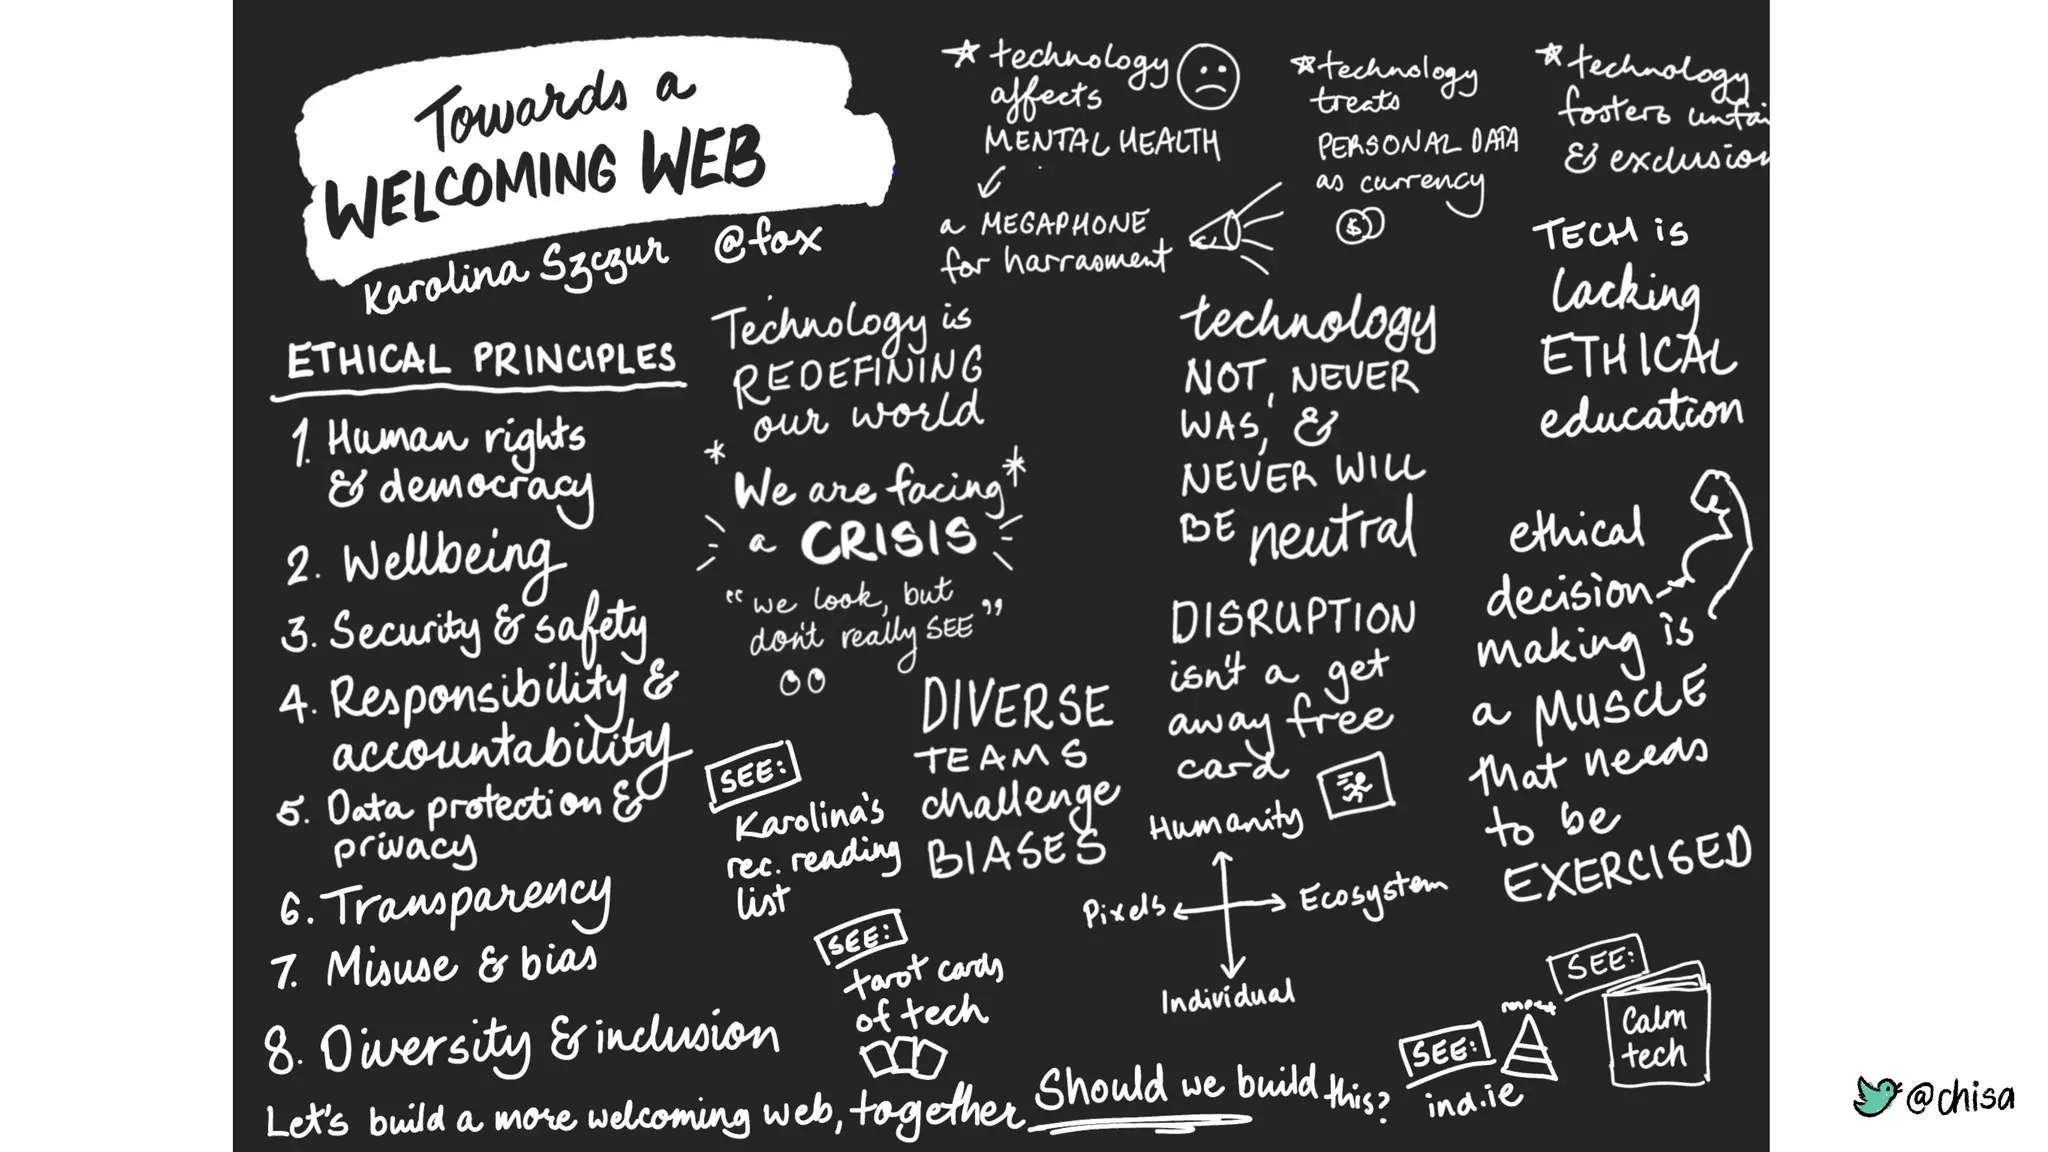 Towards a
WELCOMING WEB
Karolina Szczur @fox
ETHICAL PRINCIPLES
1. Human rights
& democracy
2. Wellbeing
3. Security & safety
4. Responsibility &
accountability
5. Data protection &
privacy
6. Transparency
7. Misuse & bias
8. Diversity & inclusion
Let's build a more welcoming web, together
Technology is
REDEFINING
our world
* We are facing *
a CRISIS
"we look, but
don't really SEE"
SEE:
Karolina's
rec. reading
list
SEE:
tarot cards
of tech
DIVERSE
TEAMS
challenge
BIASES
technology
affects
MENTAL HEALTH
a MEGAPHONE
for harrasment
technology
treats
PERSONAL DATA
as currency
$
technology
fosters unfai
& exclusion
technology
NOT, NEVER
WAS, &
NEVER WILL
BE neutral
DISRUPTION
isn't a get
away free
card
Humanity
Pixels
Ecosystem
Individual
Should we build this?
TECH is
lacking
ETHICAL
education
ethical
decision-
making is
a MUSCLE
that needs
to be
EXERCISED
SEE:
ind.ie
SEE:
Calm
tech
@chisa